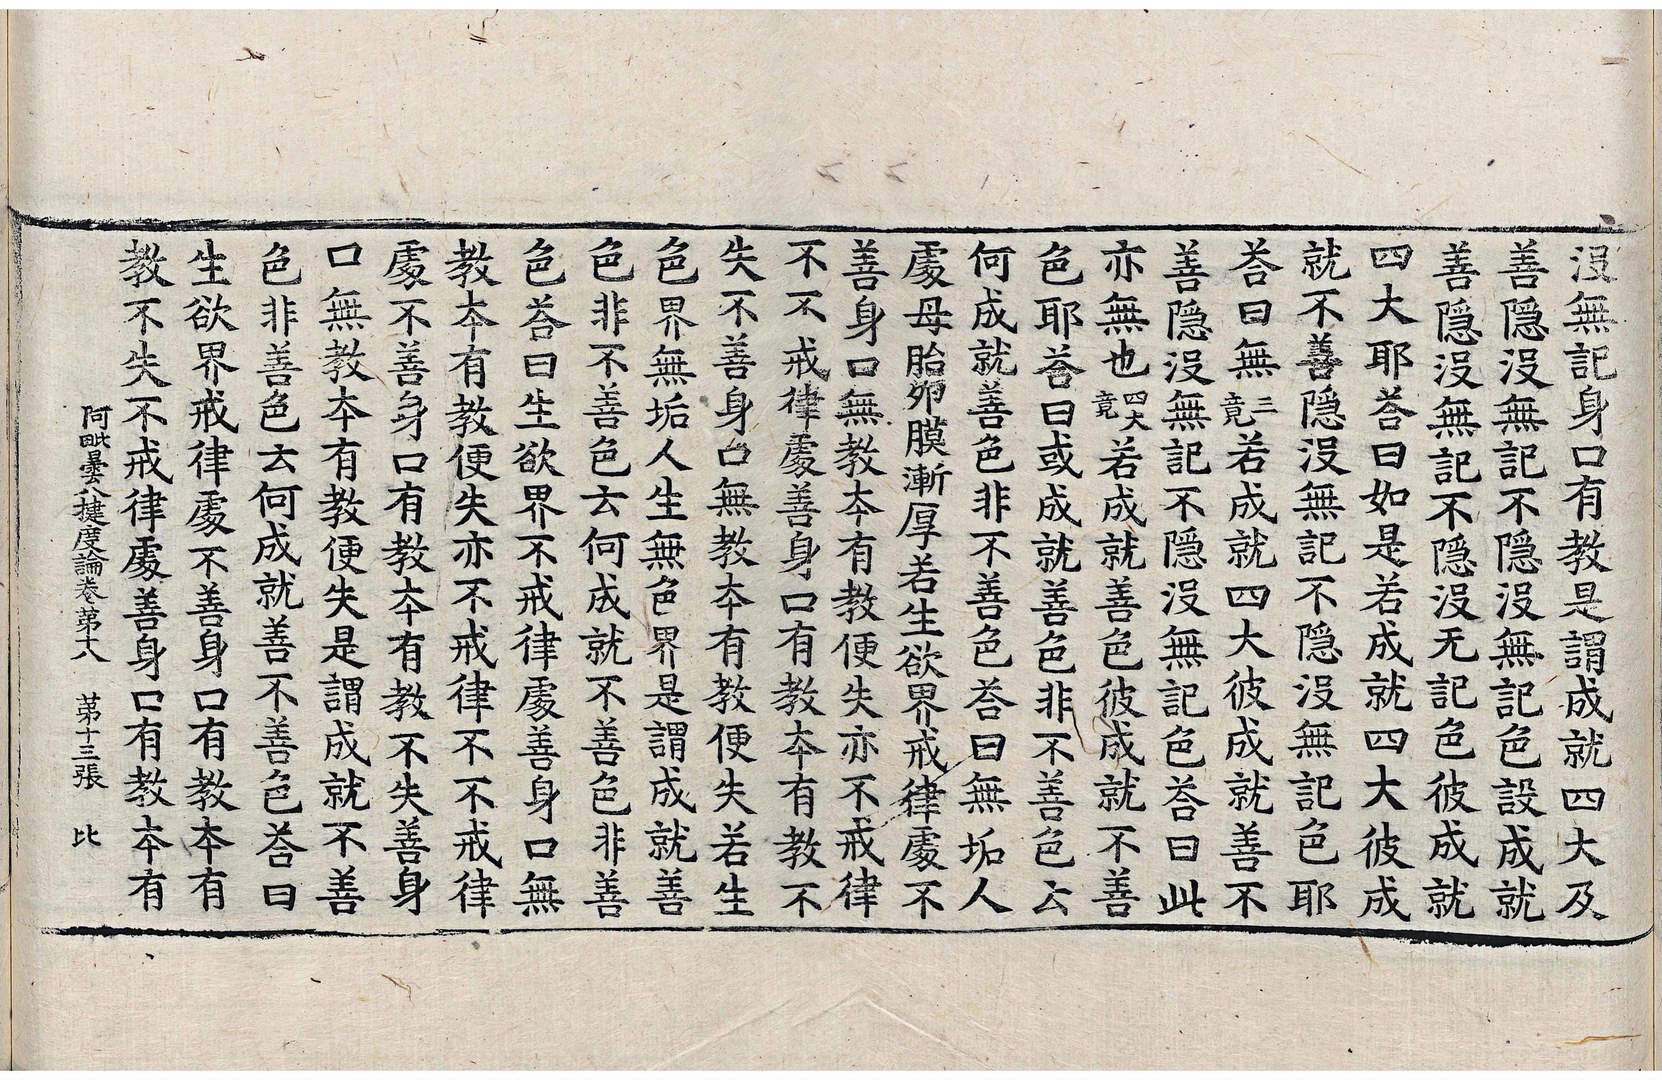 没無記身口有教是謂成就四大及
善隱没無記不隱没無記色設成就
善隱没無記不隱没无記色彼成就
四大耶荅曰如是若成就四大彼成
就不善隱没無記不隱没無記色耶
荅曰無三竟若成就四大彼成就善不
善隱没無記不隱没無記色荅曰此
亦無也四大竟若成就善色彼成就不善
色耶荅曰或成就善色非不善色云
何成就善色非不善色荅曰無垢人
處母胎卵膜漸厚若生欲界戒律處不
善身口無教夲有教便失亦不戒律
不不戒律處善身口有教夲有教不
失不善身口無教夲有教便失若生
色界無垢人生無色界是謂成就善
色非不善色云何成就不善色非善
色荅曰生欲界不戒律處善身口無
教夲有教便失亦不戒律不不戒律
處不善身口有教夲有教不失善身
口無教夲有教便失是謂成就不善
色非善色云何成就善不善色荅曰
生欲界戒律處不善身口有教夲有
教不失不戒律處善身口有教夲有
阿毗曇八揵度論卷第十八　第十三張　比